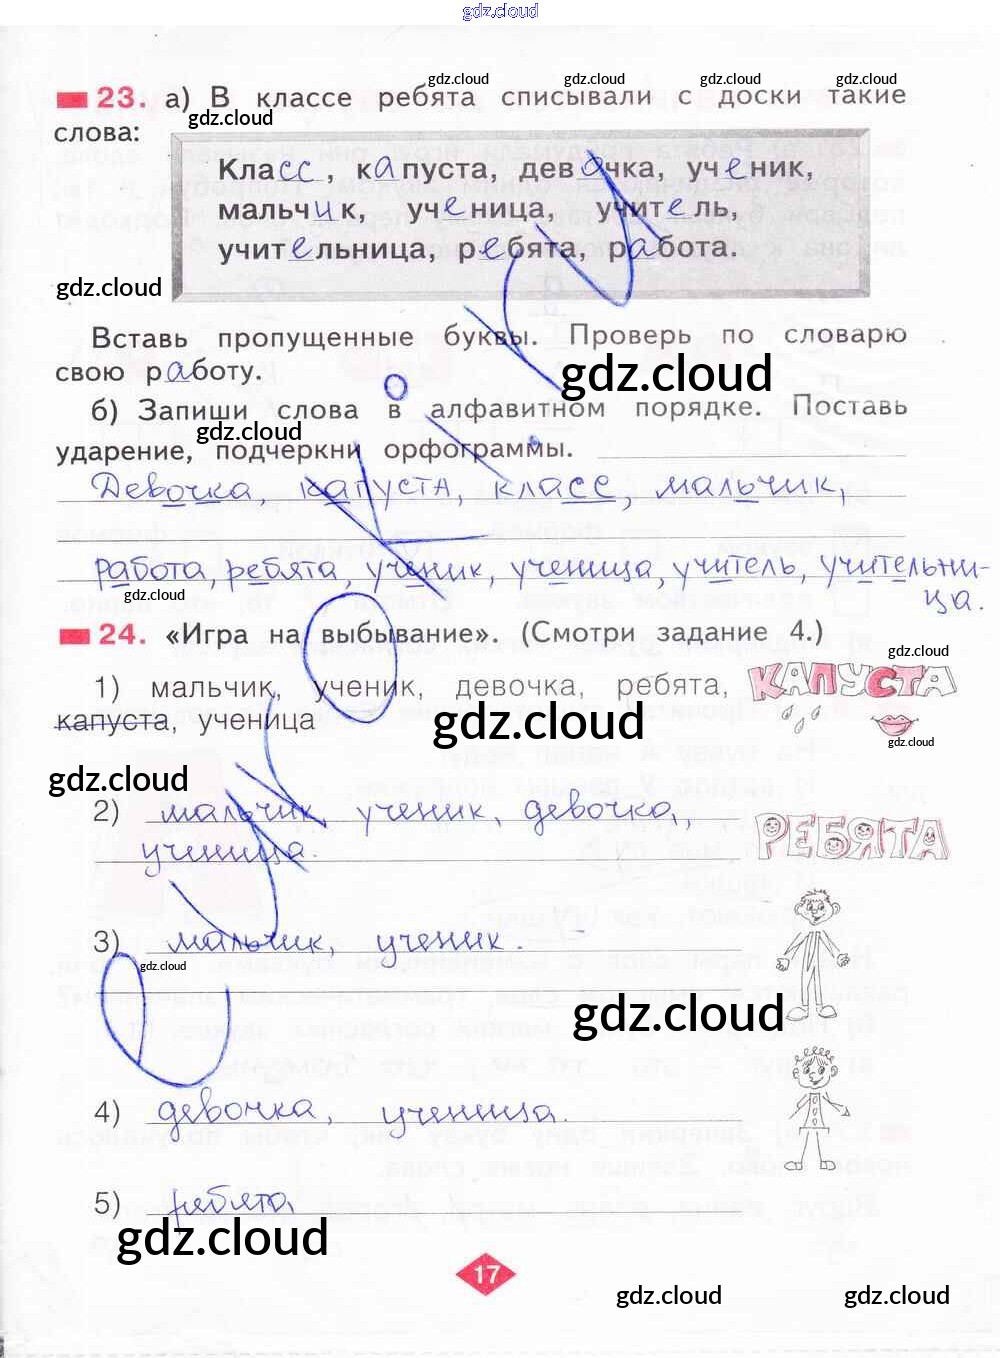 gdz.cloud
gdz.cloud gdz.cloud gdz.cloud gdz.cloud
23. а) В классе ребята списывали с доски такие
слова: gdz.cloud
Класс, капуста, девочка, ученик,
мальчик, ученица, учитель,
учительница, ребята, работа.
gdz.cloud
Вставь пропущенные буквы. Проверь по словарю
свою работу.
gdz.cloud
б) Запиши слова в алфавитном порядке. Поставь
gdz.cloud
ударение, подчеркни орфограммы.
Девочка, капуста, класс, мальчик,
работа, ребята, ученик, ученица, учитель, учительни-
ца.
gdz.cloud
24. «Игра на выбывание». (Смотри задание 4.)
gdz.cloud
1) мальчик, ученик, девочка, ребята,
капуста, ученица
КАПУСТА
gdz.cloud
gdz.cloud
gdz.cloud
2) мальчик, ученик, девочка,,
ученица.
РЕБЯТА
3) мальчик, ученик.
gdz.cloud
gdz.cloud
4) девочка, ученица.
5) ребята
gdz.cloud
17
gdz.cloud gdz.cloud